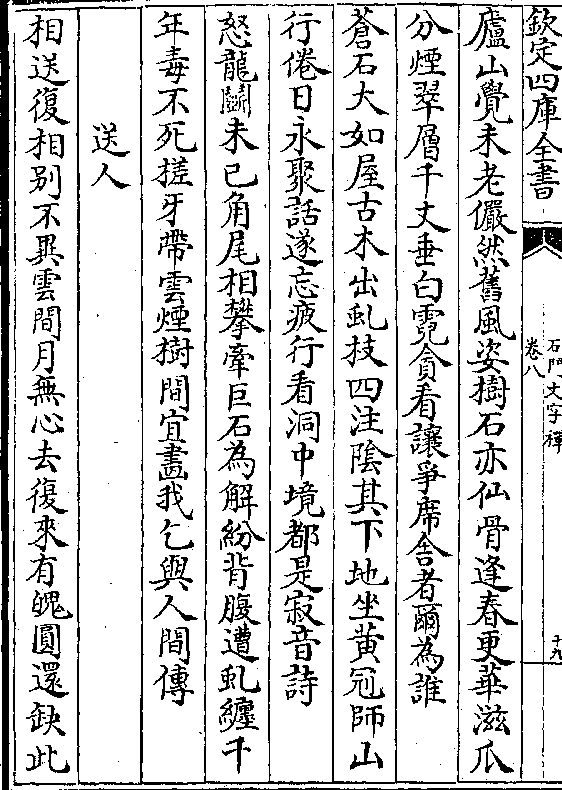 欽定四庫全書
石門文字禪
卷八
十九
廬山覺未老儼然舊風姿樹石亦仙骨逢春更華滋爪
分煙翠層千丈垂白霓貪看讓爭席舍者爾為誰
蒼石大如屋古木出虬技四注陰其下地坐黃冠師山
行倦日永聚話遂忘疲行看洞中境都是寂音詩
怒龍鬬未已角尾相攀牽巨石為解紛背腹遭虬纏千
年毒不死槎牙帶雲煙樹間宜畫我乞與人間傳
送人
相送復相别不異雲間月無心去復來有魄圓還缺此